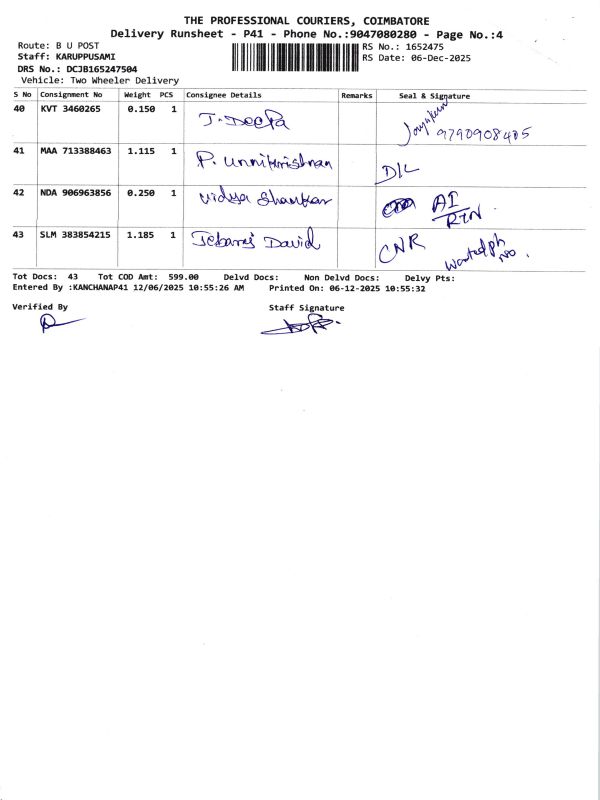 THE PROFESSIONAL COURIERS, COIMBATORE
Delivery Runsheet - P41 - Phone No.:9047080280 - Page No.:4
Route: B U POST
Staff: KARUPPUSAMI
DRS No.: DCJB165247504
Vehicle: Two Wheeler Delivery
RS No.: 1652475
RS Date: 06-Dec-2025
S No Consignment No Weight PCS Consignee Details Remarks Seal & Signature
40 KVT 3460265 0.150 1 J. Deepa 9790908405
41 MAA 713388463 1.115 1 P. Unnikrishnan D/L
42 NDA 906963856 0.250 1 Vidya Shankar AI
RTN
43 SLM 383854215 1.185 1 Jebaraj David CNR
wanted ph
no.
Tot Docs: 43 Tot COD Amt: 599.00 Delvd Docs: Non Delvd Docs: Delvy Pts:
Entered By :KANCHANAP41 12/06/2025 10:55:26 AM Printed On: 06-12-2025 10:55:32
Verified By Staff Signature